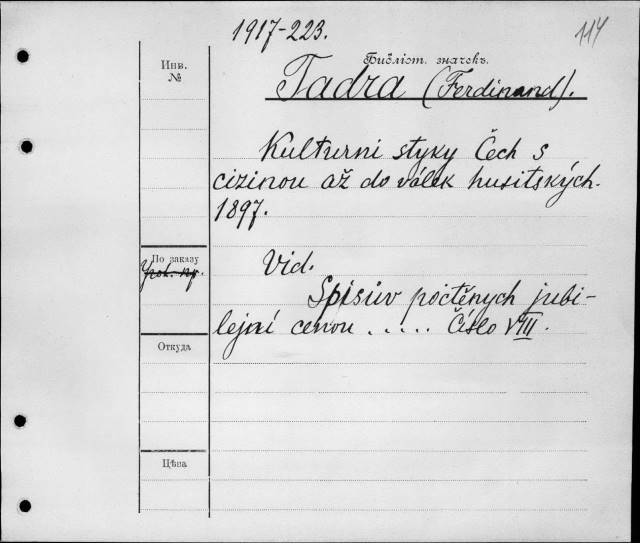 1917-223.
114
Инв.
№
Библіот. значекъ.
Tadra (Ferdinand).
Kulturni styky Čech s
cizinou až do válek husitských.
1897.
По заказу
Vid.
Spisův poctěnych jubi-
lejní cenou ..... Číslo VIII.
Откуда
Цѣна